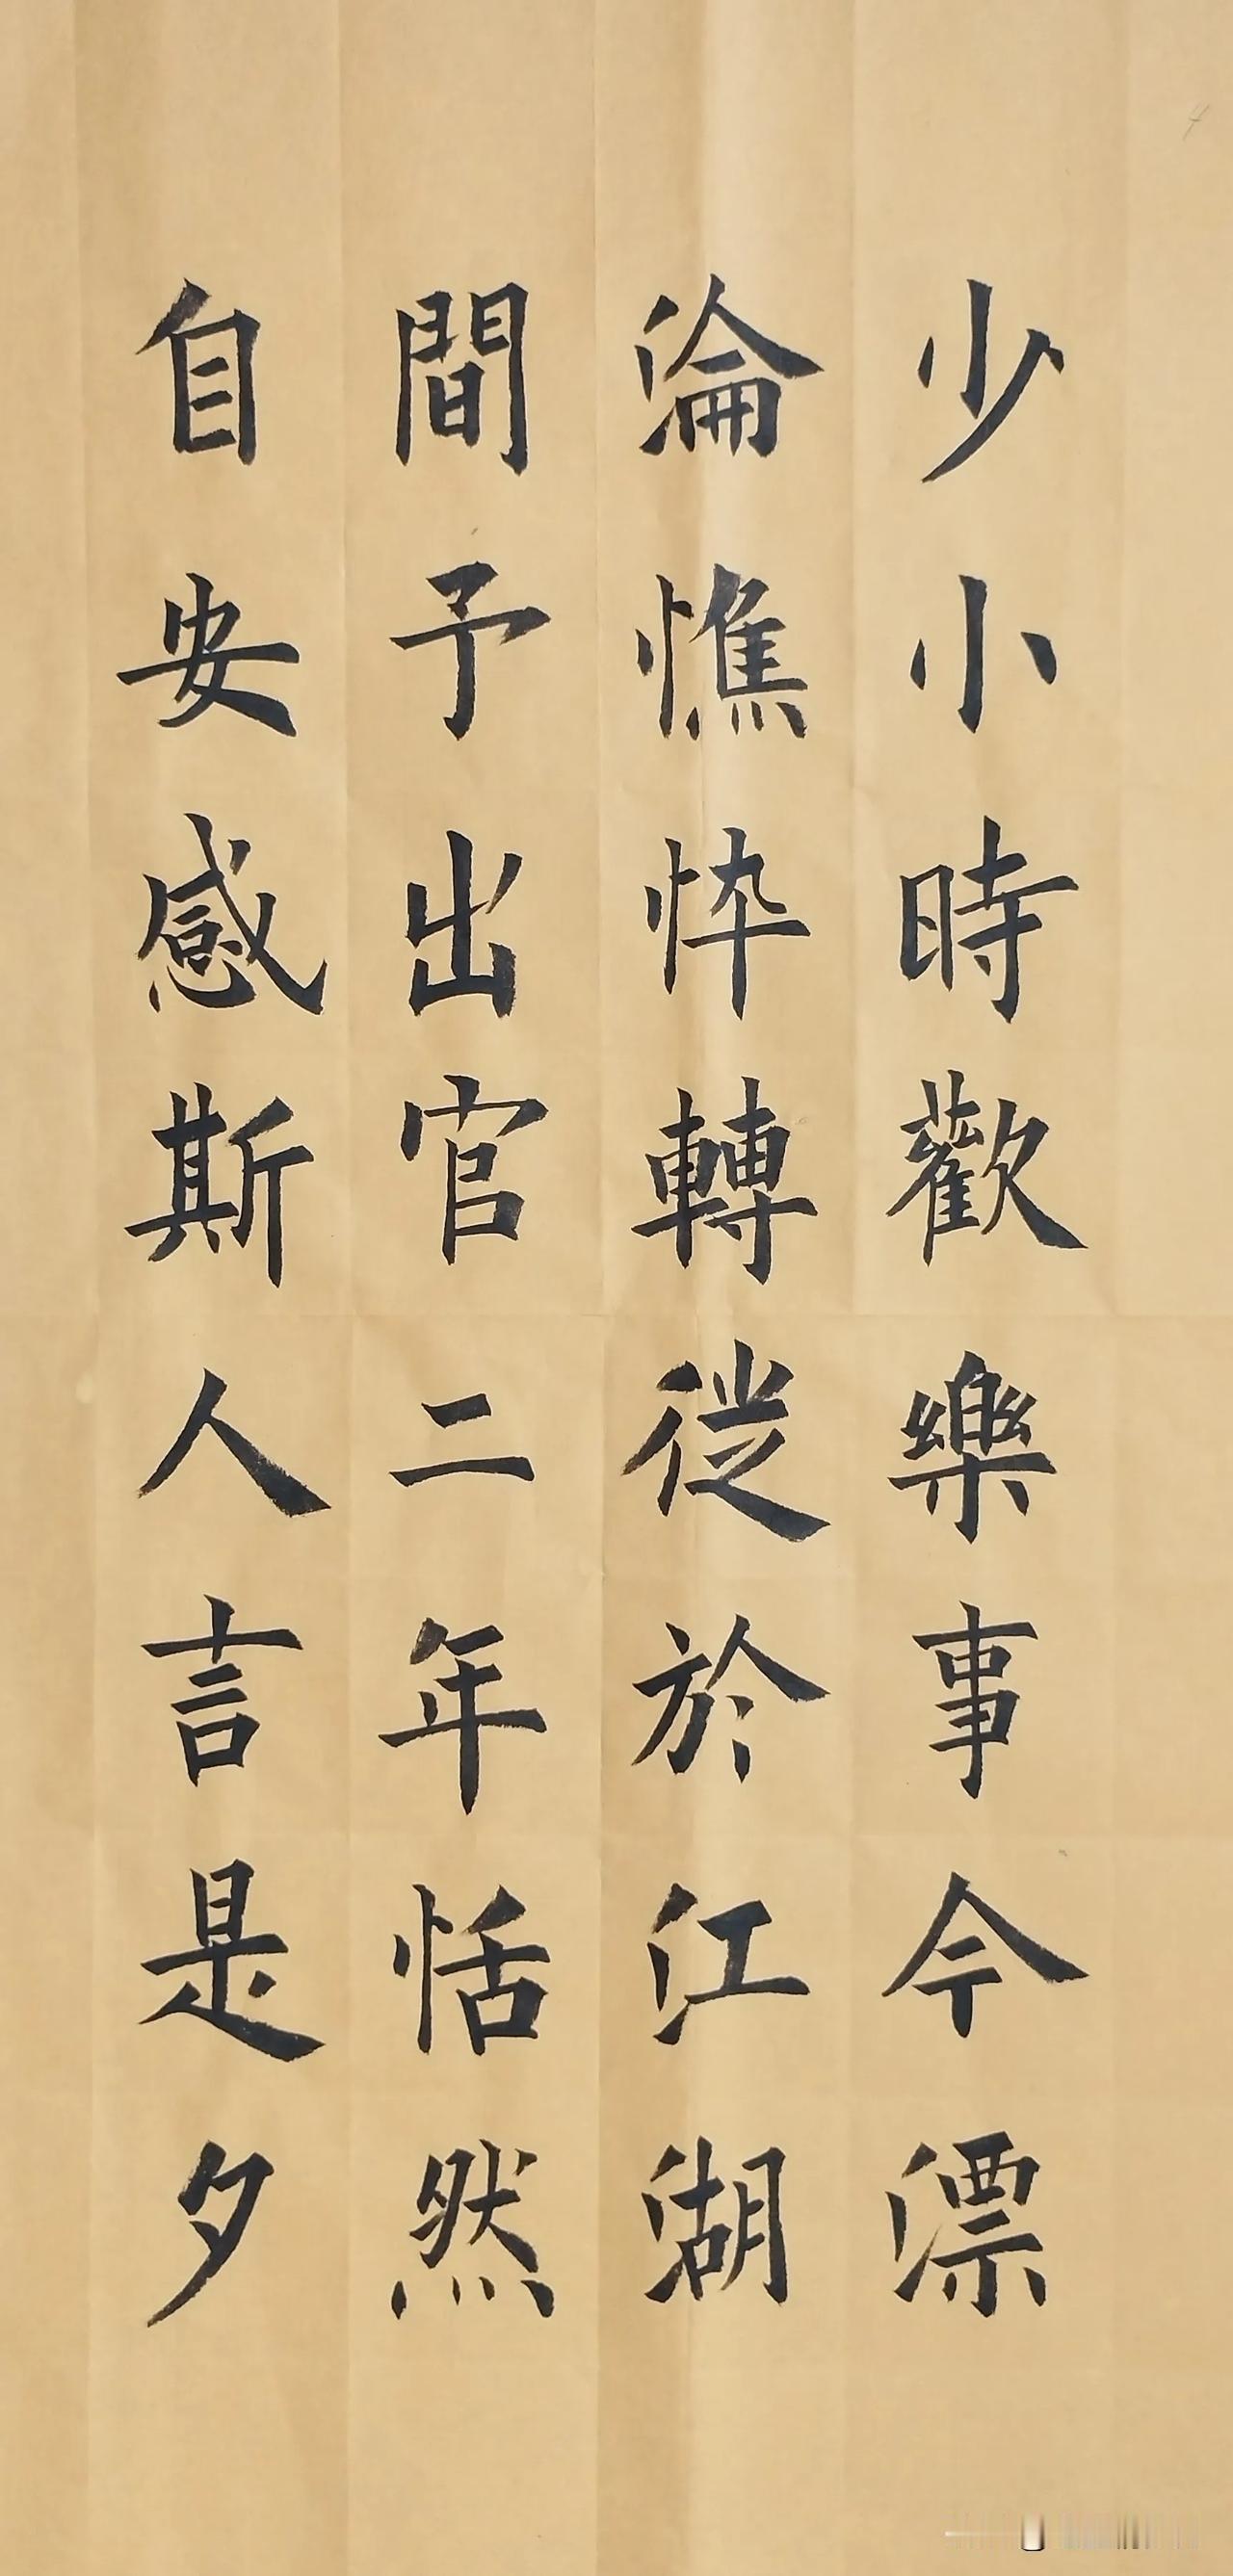 少小時歡樂事今漂
淪憔忰轉徙於江湖
間予出官二年恬然
自安感斯人言是夕